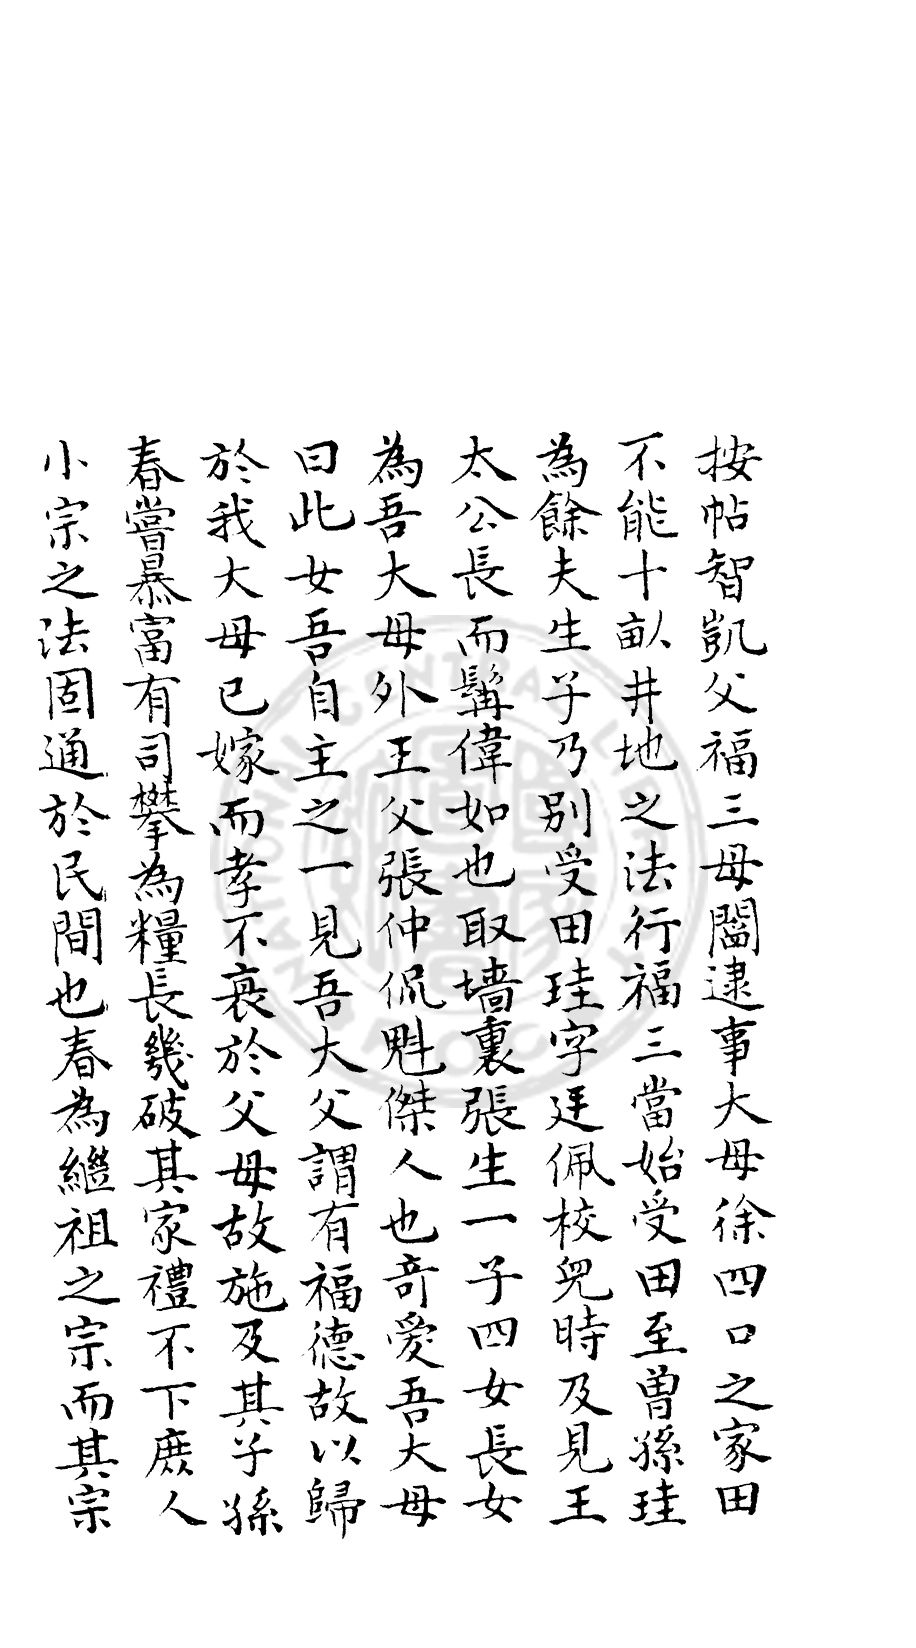 按帖智凱父福三母闔逮事大母徐四口之家田
不能十畝井地之法行福三當始受田至曾孫珪
為餘夫生子乃別受田珪字廷佩校兒時及見王
太公長而髯偉如也取墻裏張生一子四女長女
為吾大母外王父張仲侃魁傑人也奇愛吾大母
曰此女吾自主之一見吾大父謂有福德故以歸
於我大母已嫁而孝不衰於父母故施及其子孫
春嘗暴富有司攀為糧長幾破其家禮不下庶人
小宗之法固通於民間也春為繼祖之宗而其宗